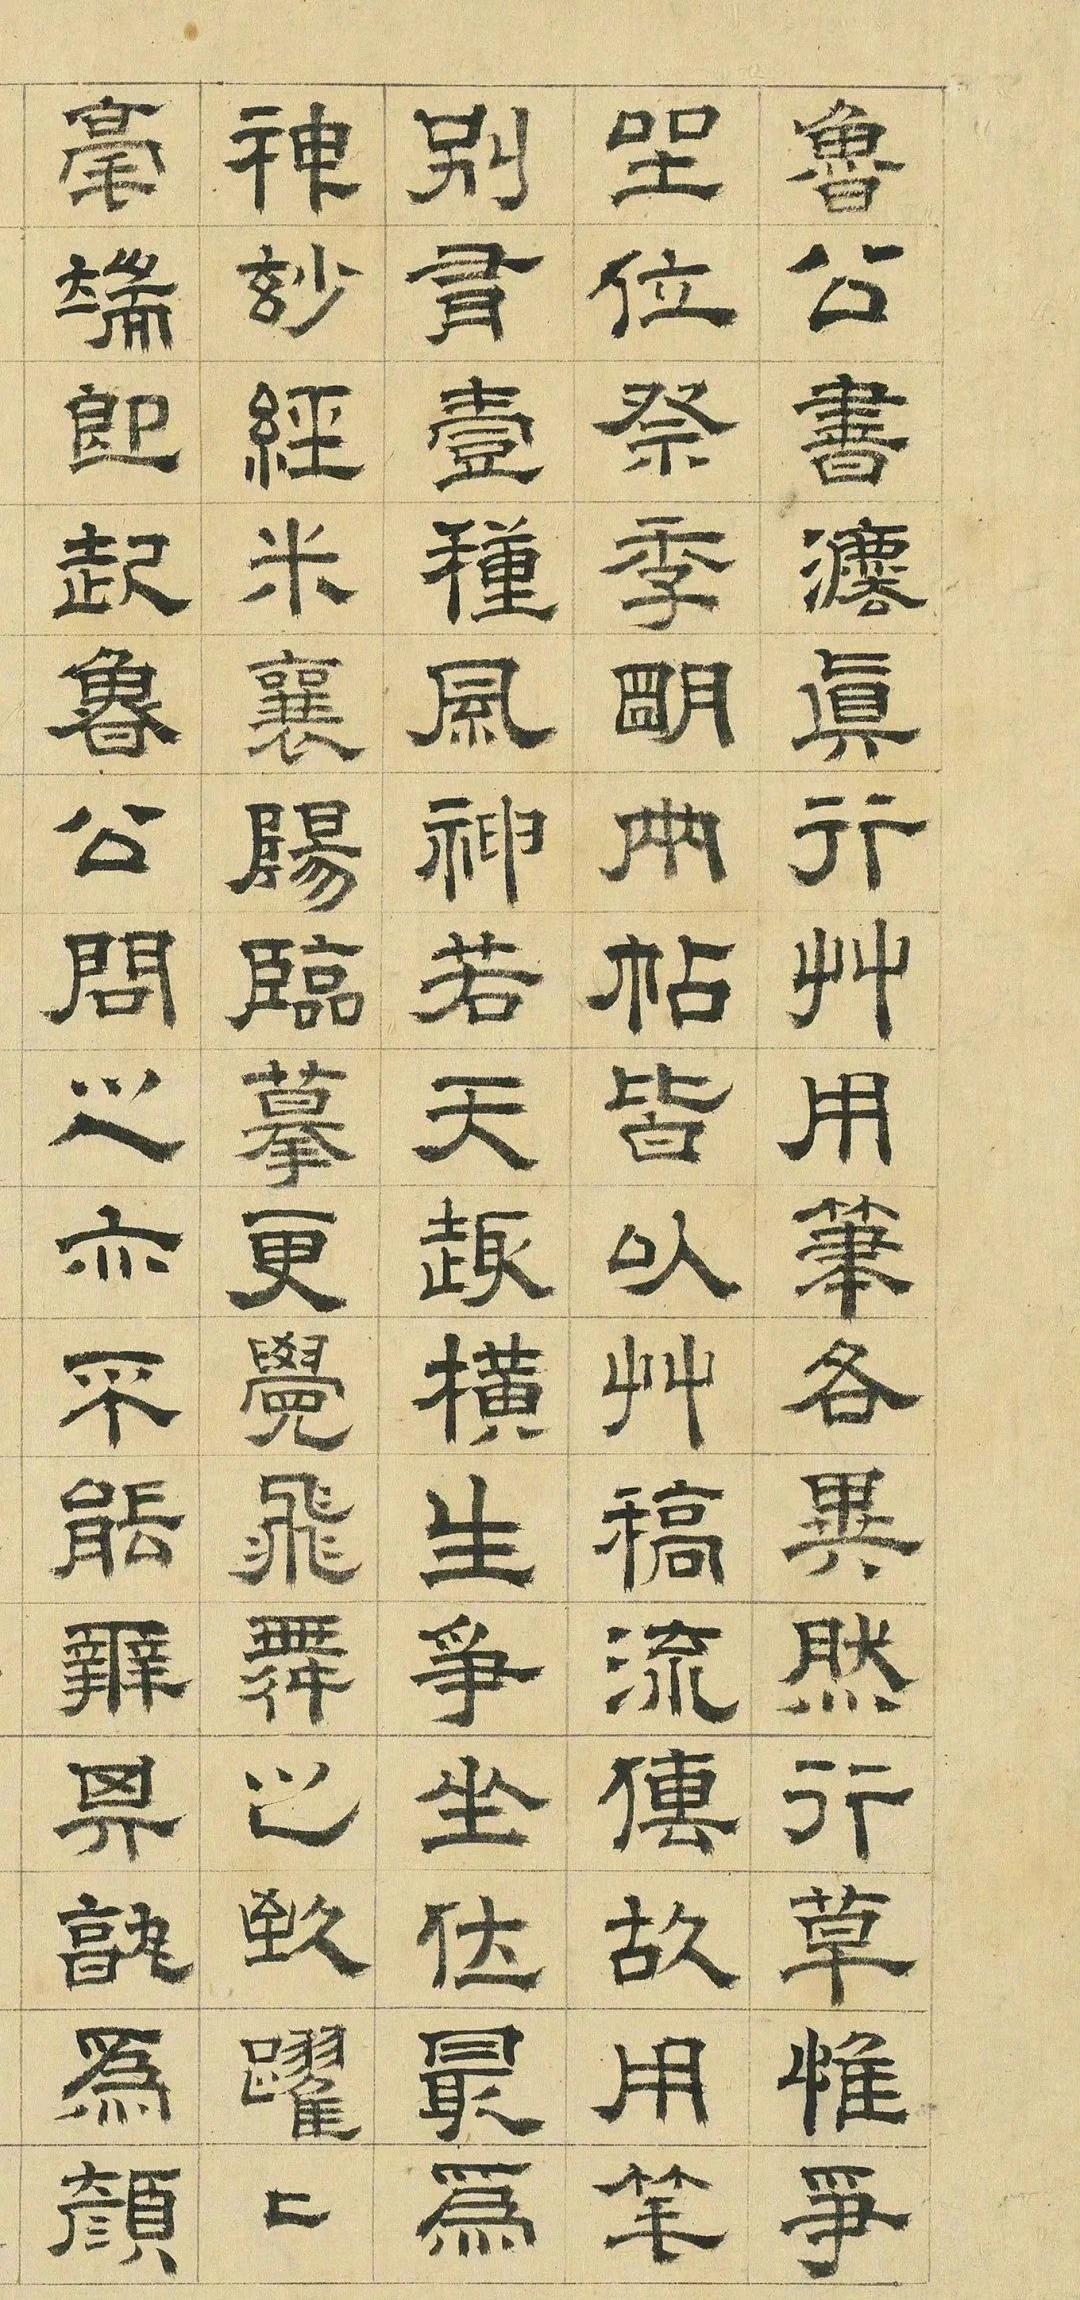 魯公書灋眞行艸用筆各異然行草惟爭
坐位祭季明兩帖皆以艸稿流傳故用笔
别有壹種風神若天趣橫生爭坐位最爲
神妙經米襄陽臨摹更覺飛舞之致躍上
毫端即起魯公問之亦不能辨其孰爲顏